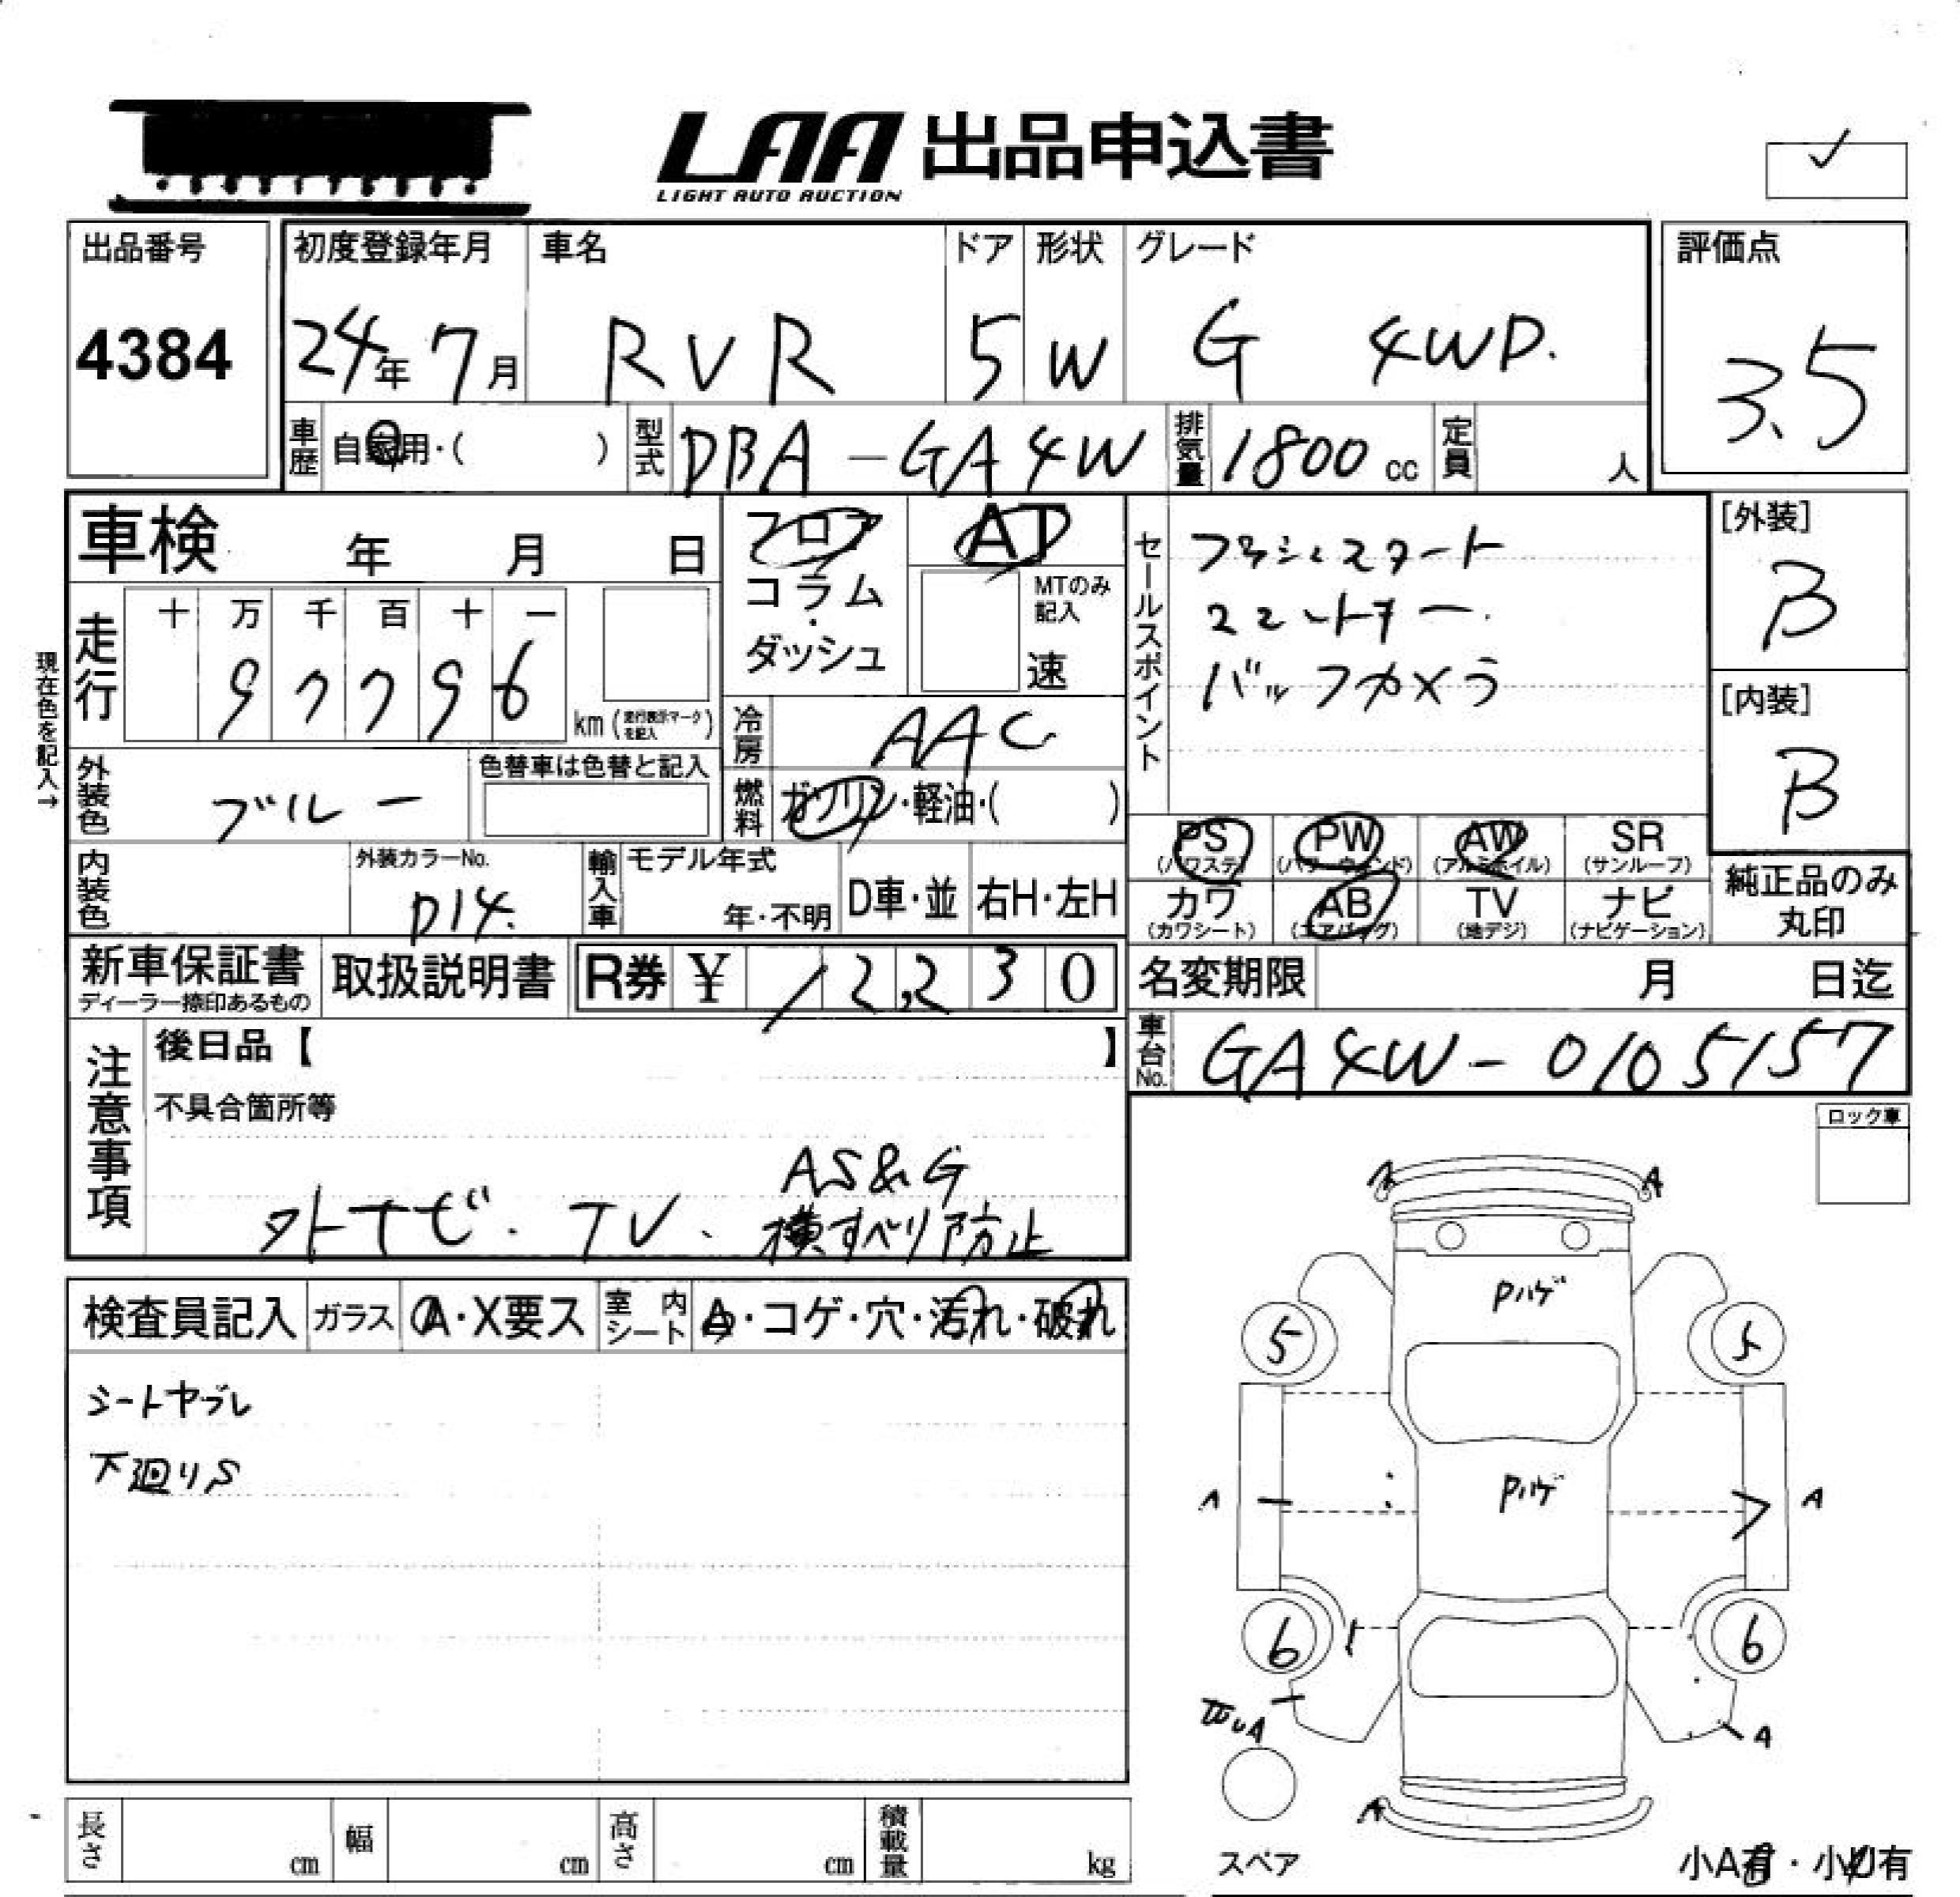 LAA 出品申込書
LIGHT AUTO AUCTION
出品番号
4384
初度登録年月
24年7月
車名
RVR
ドア
5
形状
W
グレード
G 4WD.
評価点
3.5
車歴
自家用・( )
型式
DBA-GA4W
排気量
1800 cc
定員
人
車検 年 月 日
フロア
コラム
ダッシュ
AT
MTのみ
記入
速
現在色を記入→
走行
十 万 千 百 十 一
97796
km (走行表示マークを記入)
冷房
AAC
外装色
ブルー
色替車は色替と記入
燃料
ガソリン・軽油・( )
内装色
外装カラーNo.
D14.
輸入車
モデル年式
年・不明
D車・並
右H・左H
セールスポイント
プッシュスタート
スマートキー.
バックカメラ
[外装]
B
[内装]
B
PS
(パワステ)
PW
(パワーウィンド)
AW
(アルミホイル)
SR
(サンルーフ)
カワ
(カワシート)
AB
(エアバッグ)
TV
(地デジ)
ナビ
(ナビゲーション)
純正品のみ
丸印
新車保証書
ディーラー捺印あるもの
取扱説明書
R券 ¥ 12,230
名変期限 月 日迄
車台No.
GA4W-0105157
注意事項
後日品【 】
不具合箇所等
AS&G
外ナビ・TV、横すべり防止
ロック車
検査員記入
ガラス
A・X要ス
室内
シート
A・コゲ・穴・汚れ・破れ
シートヤブレ
下廻りS
A A
Pハゲ
5 5
Pハゲ
A A
6 6
A
A
スペア
小A有・小U有
長さ cm
幅 cm
高さ cm
積載量 kg